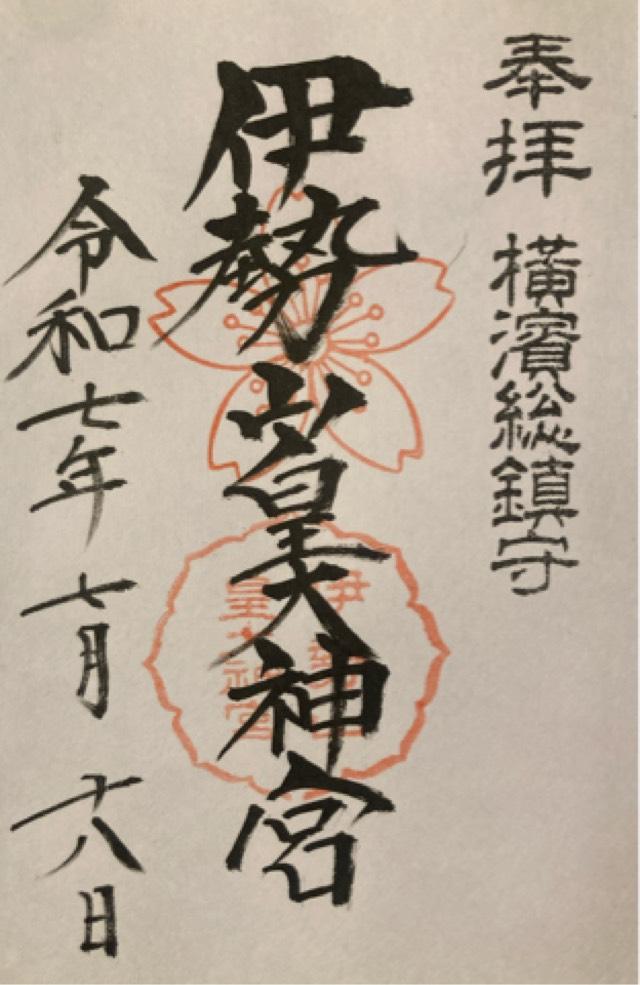 奉拝 横濱総鎮守
伊勢山皇大神宮
令和七年 七月 十八日
伊勢山
皇大神宮